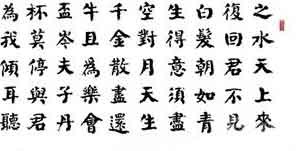 之水天上來
復回君不見
白髮朝如青
生得意須盡
空對月天生
千金散盡還
牛且為樂會
盃岑夫子丹
杯莫停與君
為我傾耳聽